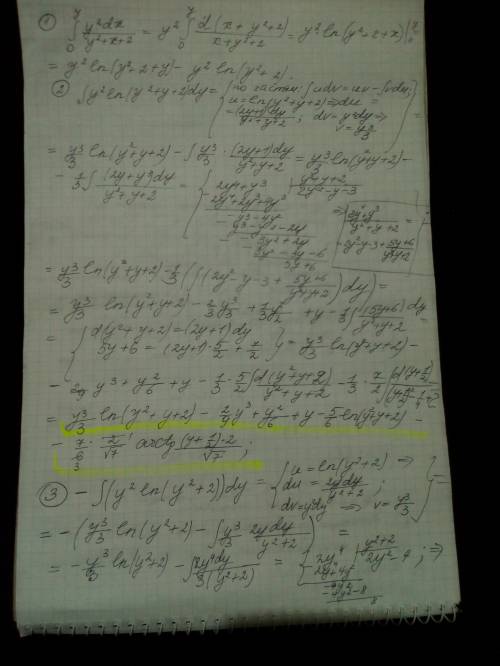 ① ∫₀^y y²dx/(y²+x+2) = y² ∫₀^y d(x+y²+2)/(x+y²+2) = y² ln(y²+2+x)|₀
= y² ln(y²+2+y) - y² ln(y²+2).
② ∫y² ln(y²+y+2)dy = { по частям: ∫udv = uv - ∫vdu;
u = ln(y²+y+2) ⇒ du =
= (2y+1)dy/(y²+y+2); dv = y²dy ⇒ v = y³/3 } =
= y³/3 ln(y²+y+2) - ∫ y³/3 · (2y+1)dy/(y²+y+2) = y³/3 ln(y²+y+2) -
- 1/3 ∫ (2y⁴+y³)dy/(y²+y+2) = { 2y⁴+y³ | y²+y+2
2y⁴+2y³+4y² | 2y²-y-3
-y³-4y²
-y³-y²-2y
-3y²+2y
-3y²-3y-6
5y+6
⇒ (2y⁴+y³)/(y²+y+2) =
= 2y²-y-3+(5y+6)/(y²+y+2)
= y³/3 ln(y²+y+2) - 1/3 (∫(2y²-y-3+(5y+6)/(y²+y+2))dy) =
= y³/3 ln(y²+y+2) - 2/3 y³/3 + 1/3 y²/2 + y - 1/3 ∫ (5y+6)dy/(y²+y+2) =
= { d(y²+y+2) = (2y+1)dy
5y+6 = (2y+1)·5/2 + 7/2 } = y³/3 ln(y²+y+2) -
- 2/9 y³ + y²/6 + y - 1/3 · 5/2 ∫ d(y²+y+2)/(y²+y+2) - 1/3 · 7/2 ∫
= y³/3 ln(y²+y+2) - 2/9 y³ + y²/6 + y - 5/6 ln(y²+y+2) -
- 7/6 · 2/√7 arctg (y+1/2)·2/√7 ;
③ - ∫(y² ln(y²+2))dy = { u = ln(y²+2) ⇒
du = 2ydy/(y²+2);
dv = y²dy ⇒ v = y³/3 } =
= -(y³/3 ln(y²+2) - ∫ y³/3 2ydy/(y²+2)) =
= - y³/3 ln(y²+2) - ∫ 2y⁴dy/3(y²+2) = { 2y⁴ | y²+2
2y⁴+4y² | 2y²-4
-4y²
-4y²-8
8 ; ⇒